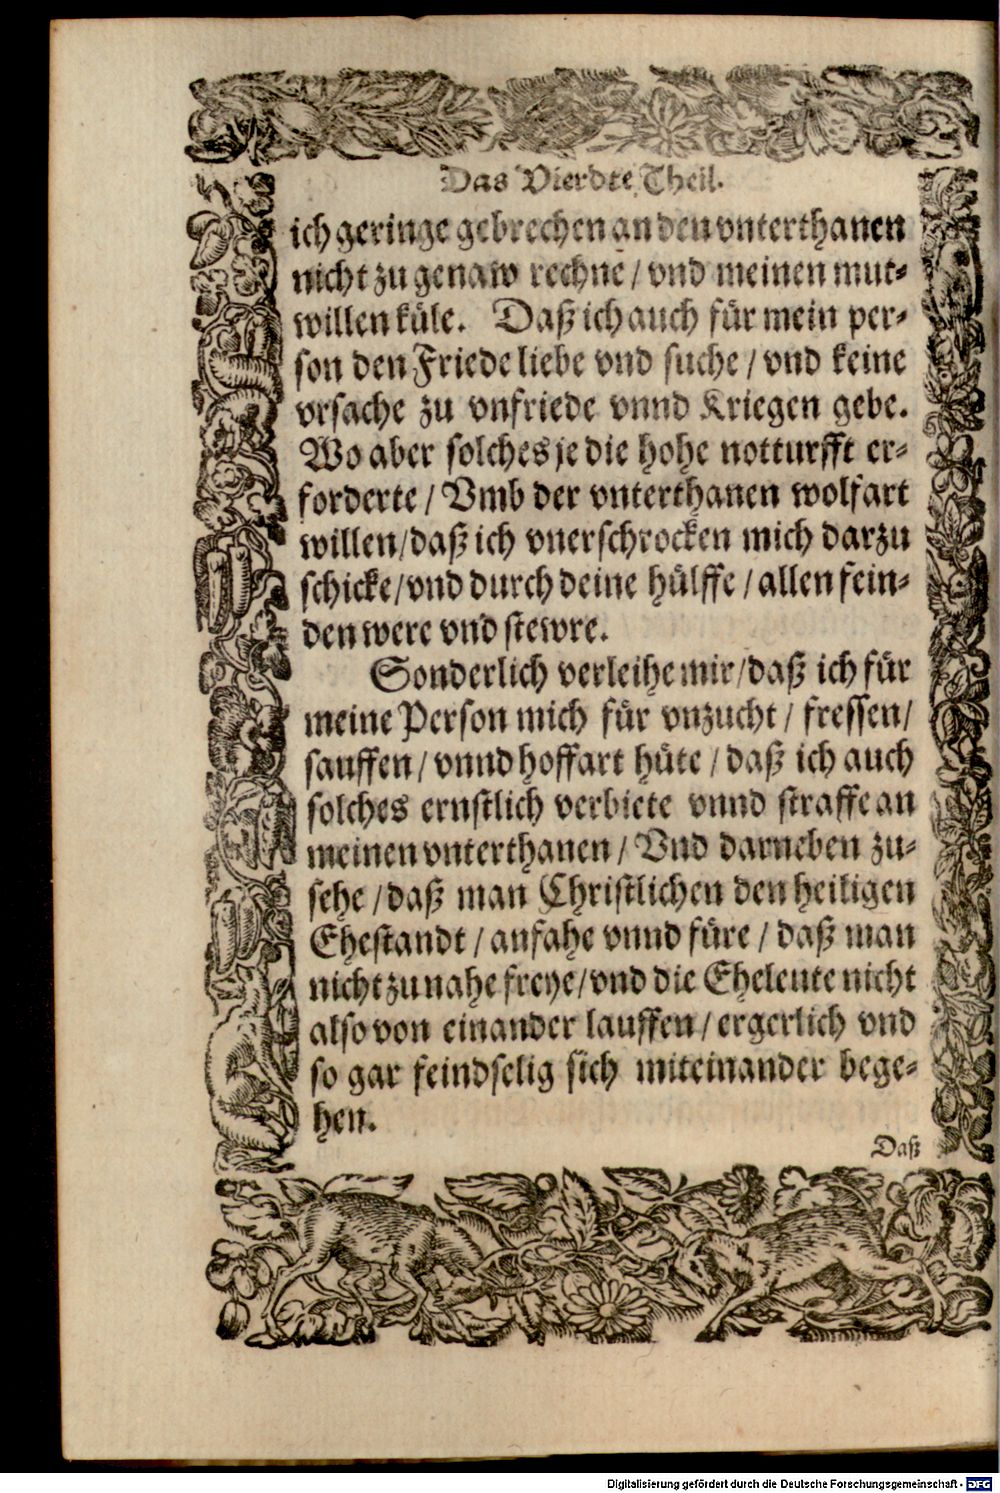 Das Vierdte Theil.
ich geringe gebrechen an den vnterthanen
nicht zu genaw rechne / vnd meinen mut-
willen küle. Daß ich auch für mein per-
son den Friede liebe vnd suche / vnd keine
vrsache zu vnfriede vnnd Kriegen gebe.
Wo aber solches je die hohe notturfft er-
forderte / Vmb der vnterthanen wolfart
willen/daß ich vnerschrocken mich darzu
schicke/vnd durch deine hülffe / allen fein-
den were vnd stewre.
Sonderlich verleihe mir/daß ich für
meine Person mich für vnzucht / fressen/
sauffen / vnnd hoffart hüte / daß ich auch
solches ernstlich verbiete vnnd straffe an
meinen vnterthanen / Vnd darneben zu-
sehe / daß man Christlichen den heiligen
Ehestandt / anfahe vnnd füre / daß man
nicht zu nahe freye/vnd die Eheleute nicht
also von einander lauffen / ergerlich vnd
so gar feindselig sich miteinander bege-
hen.
Daß
Digitalisierung gefördert durch die Deutsche Forschungsgemeinschaft - DFG